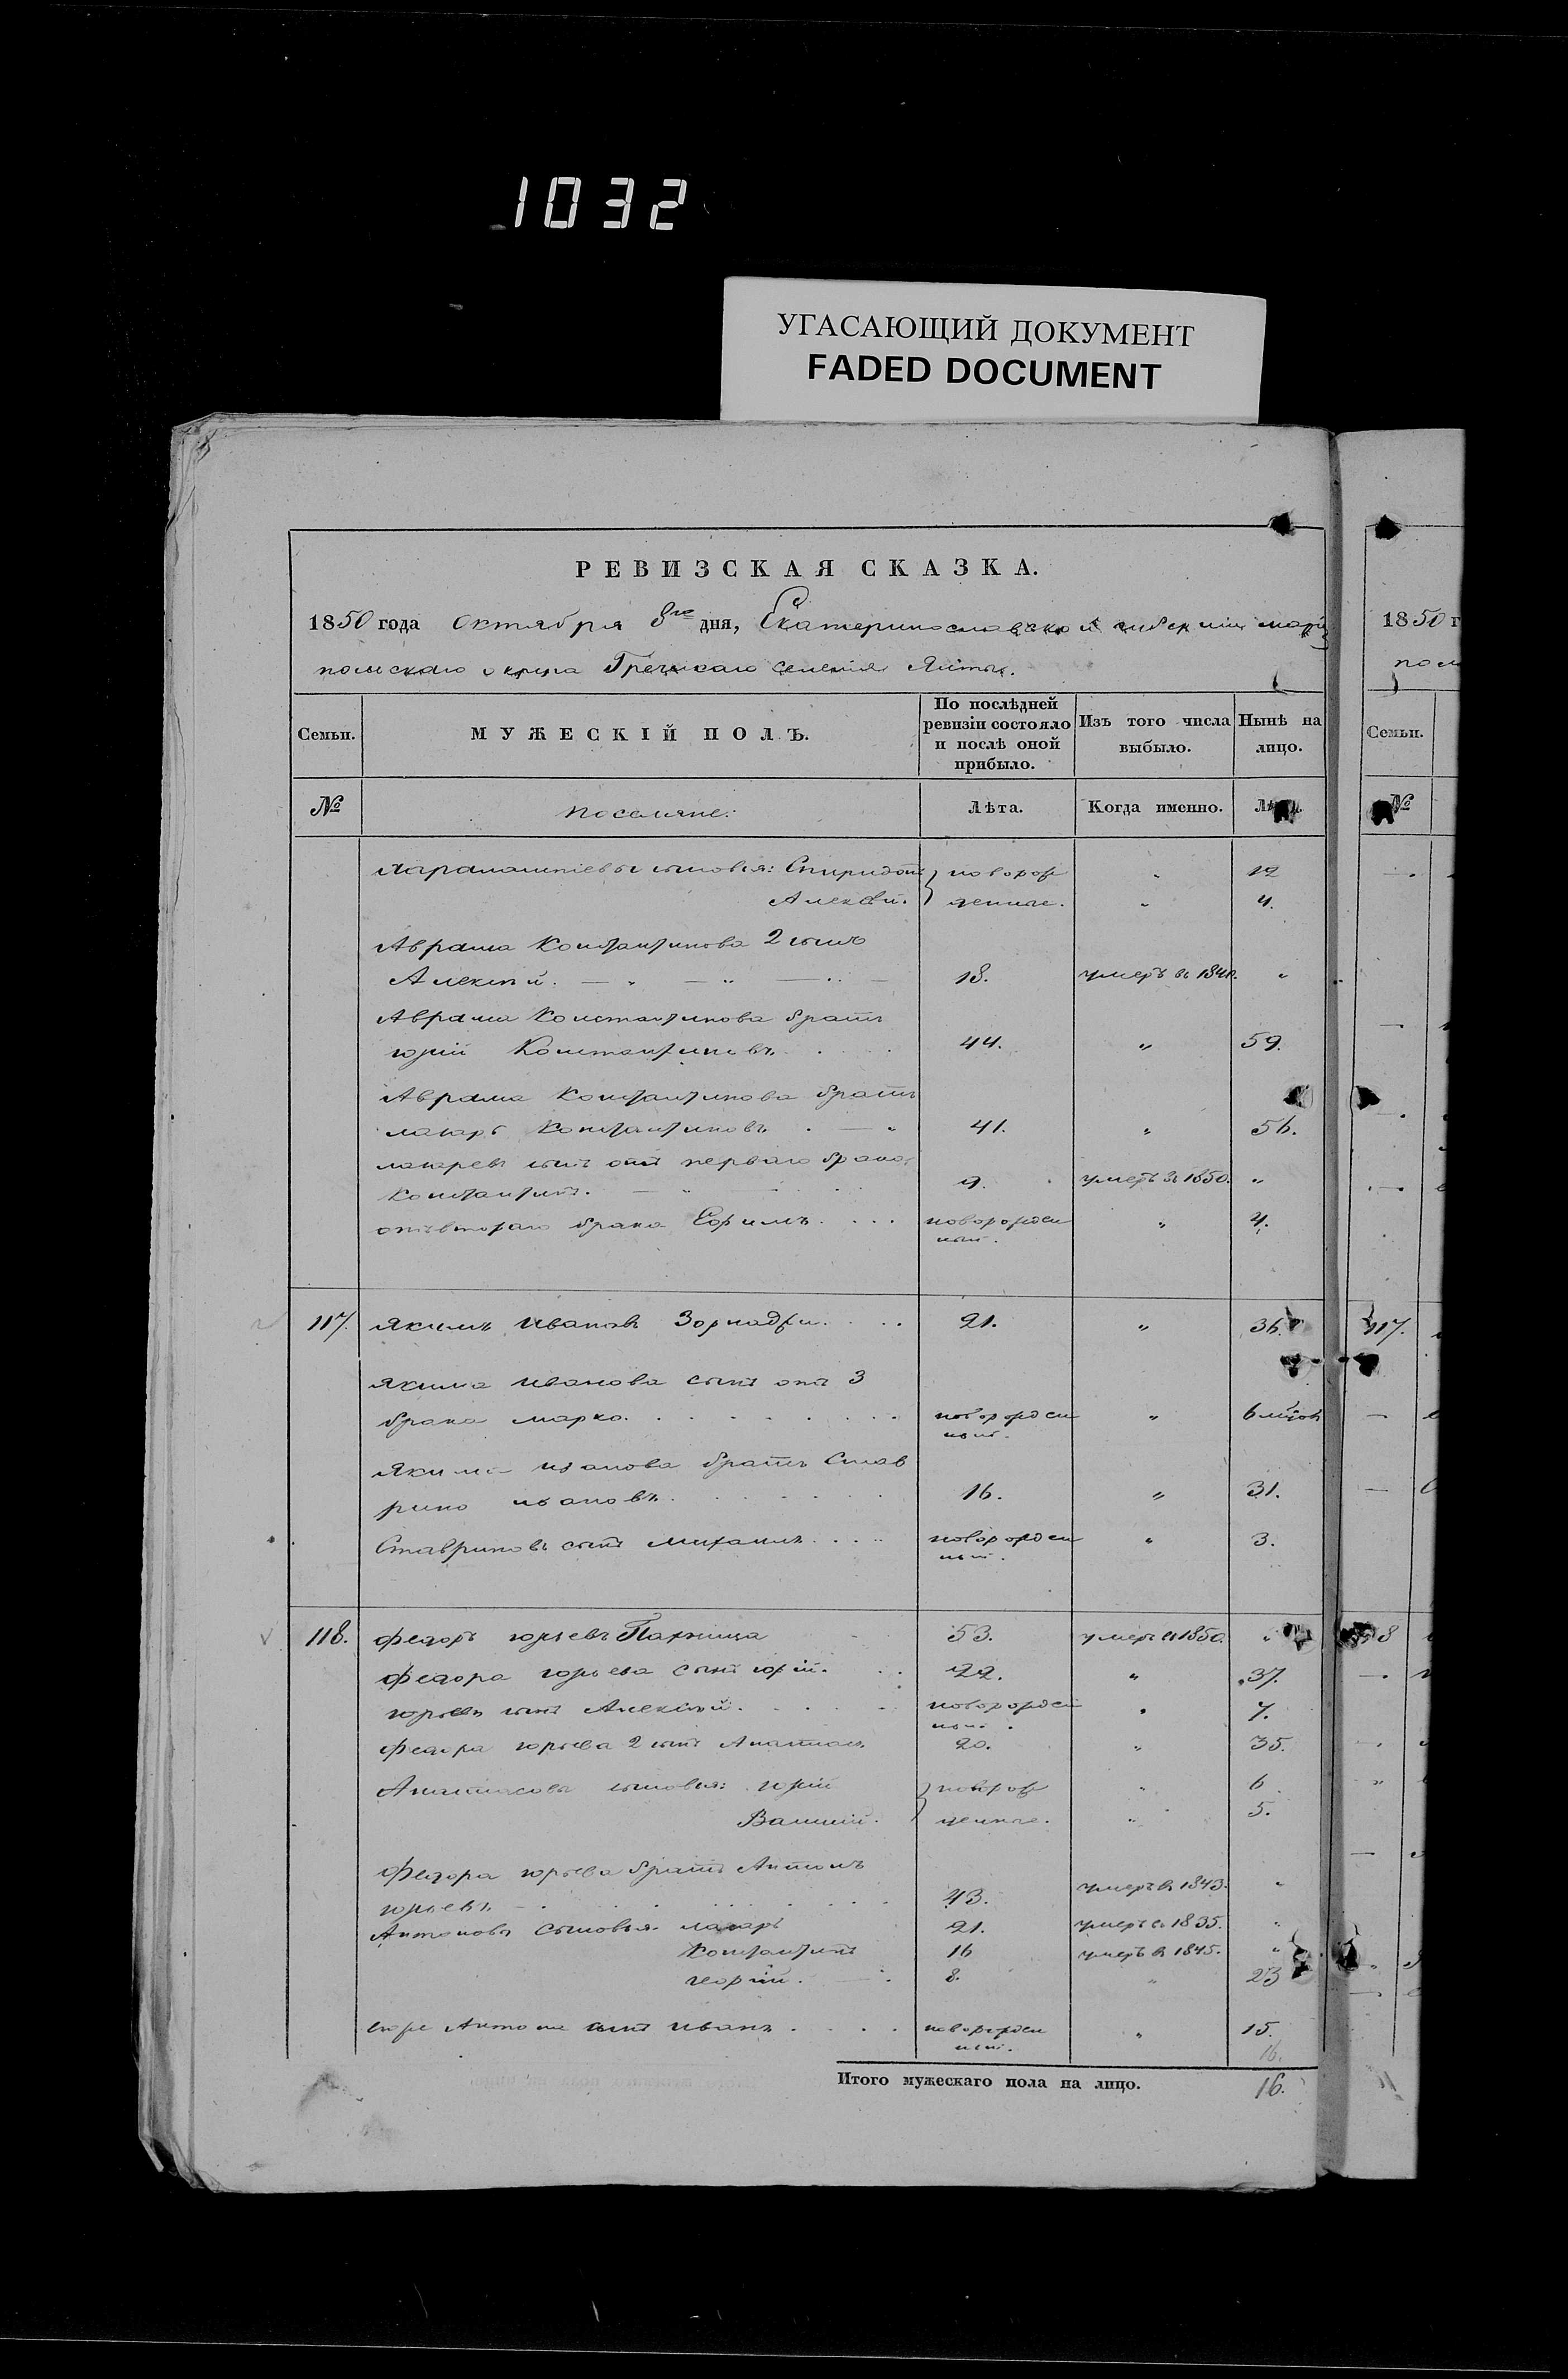 1032
УГАСАЮЩИЙ ДОКУМЕНТ
FADED DOCUMENT
РЕВИЗСКАЯ СКАЗКА.
1850 года Октября 8го дня, Екатеринославской губерніи Маріу
польскаго округа Греческаго селенія Ялты.
Семьи. МУЖЕСКІЙ ПОЛЪ. По послѣдней ревизіи состояло и послѣ оной прибыло. Изъ того числа выбыло. Нынѣ на лицо.
№ Поселяне: Лѣта. Когда именно. Лѣта.
сыновья: Спиридонъ новорож „ 12
Алексѣй. денные. „ 4.
Аврама Константинова 2 сынъ
Алексѣй. 18. умеръ въ „
Аврама Константинова братъ
Юрій Константиновъ 44. „ 59.
Аврама Константинова братъ
Лазарь Константиновъ 41. „ 56.
Лазаревъ сынъ отъ перваго брака
Константинъ. умеръ въ 1850. „
отъ втораго брака Ефимъ новорожден „ 4.
ный.
117. Якимъ Ивановъ 21. „ 36.
Якима Иванова сынъ отъ 3
брака Марко. новорожден „ 6 мѣсяц
ный.
Якима Иванова братъ Став
рино Ивановъ. 16. „ 31.
Ставриновъ сынъ Михаилъ новорожден „ 3.
ный.
118. Федоръ Юрьевъ умеръ въ 1850. „
53.
Федора Юрьева сынъ Юрій. 22. „ 37.
Юрьевъ сынъ Алексѣй. новорожден „ 7.
ный.
Федора Юрьева 2 сынъ Анастасъ 20. „ 35.
Анастасовы сыновья: Юрій новорож „ 6
Василій. денные. „ 5.
Федора Юрьева братъ Антонъ
Юрьевъ 43. умеръ въ 1843. „
Антоновы сыновья Лазарь 21. умеръ въ 1835. „
Константинъ 16 умеръ въ 1845. „
Георгій. 8. „ 23
еще Антона сынъ Иванъ новорожден „ 15.
ный.
16.
Итого мужескаго пола на лицо. 16.
1850 г
Семьи.
№
117.